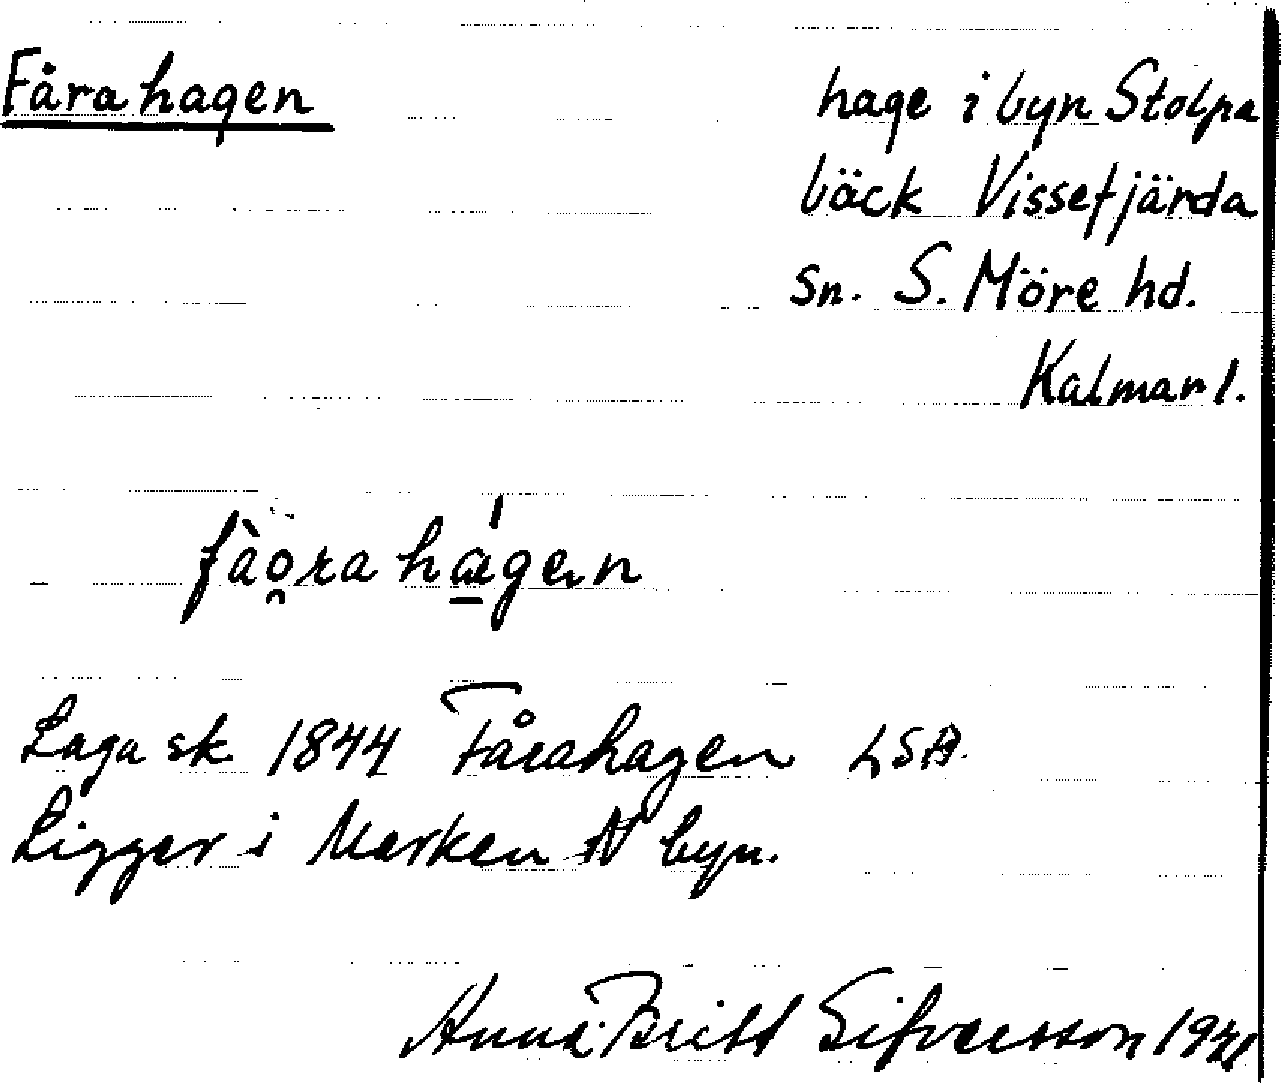 Fårahagen
hage i byn Stolpa
bäck Vissefjärda
Sn. S. Möre hd.
Kalmar l.
fàǫra há̱gen
Laga sk 1844 Fårahagen LSA.
Ligger i Marken N byn.
Anna-Britt Sifversson 1941